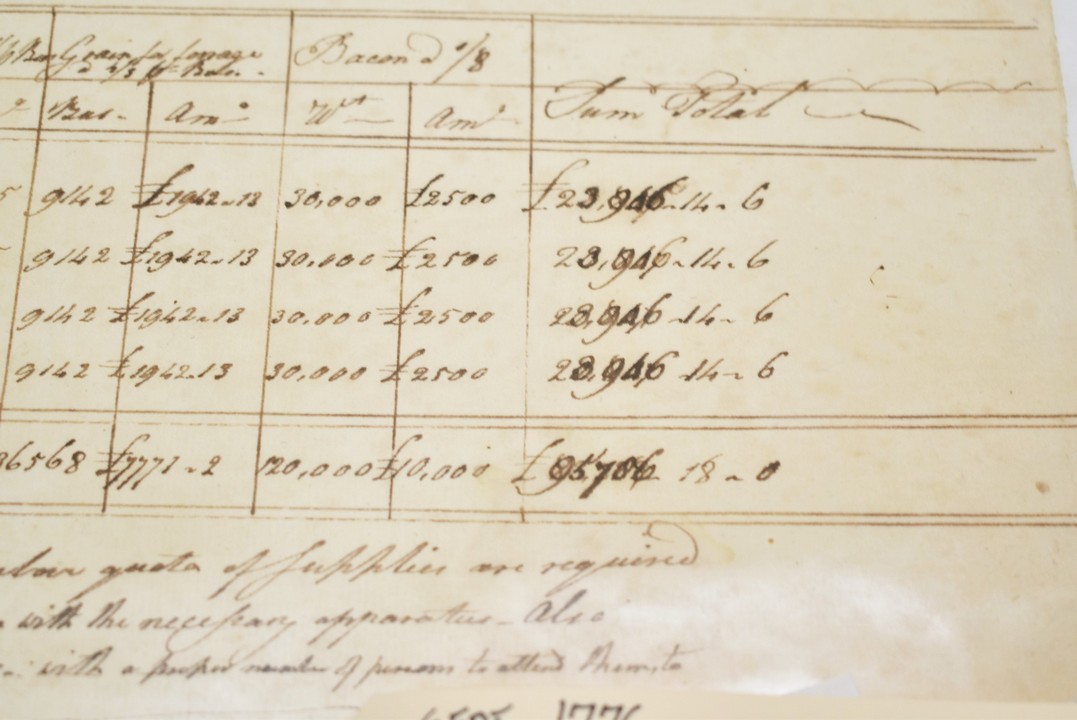 Grain for forrage Bacon @ 1/8
@ 4/3 pr Bus.
Bus. Amo Wt Amo Sum Total
9142 £1942..13 30,000 £2500 £23,946..14..6
9142 £1942..13 30,000 £2500 23,946..14..6
9142 £1942..13 30,000 £2500 23,946..14..6
9142 £1942..13 30,000 £2500 23,946..14..6
36568 £7771..2 120,000 £10,000 18..0
quota of Supplies are required
with the necessary apparatus_ Also
with a proper number of persons to attend them, to
1776